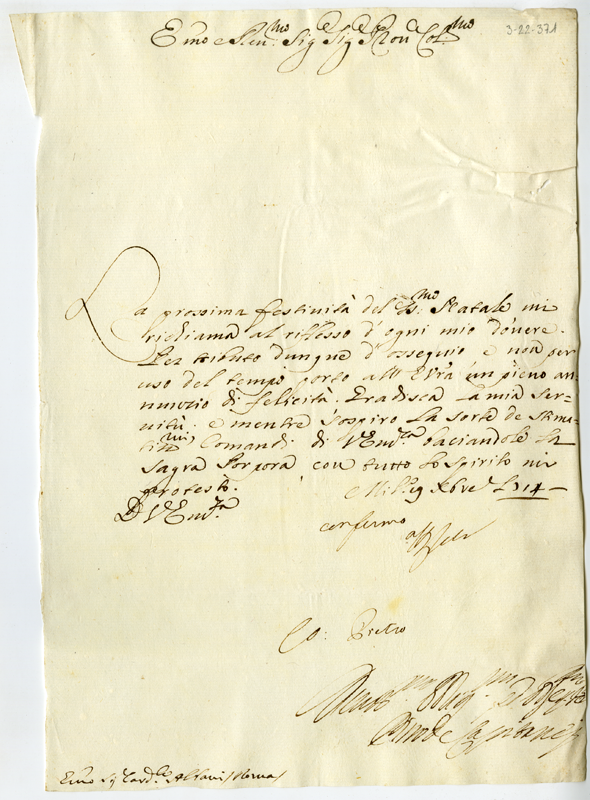 Emo e Ren:mo Sig.e Sig.e Pron Col.mo
3-22-371
La prossima festività del Ss.mo Natale mi
richiama al riflesso d'ogni mio dovere.
Per tributo dunque d'ossequio e non per
uso del tempo porto all' E.V.ra un pieno an-
nunzio di felicità. Gradisca la mia ser-
vitù; e mentre sospiro la sorte de stima-
tiss.mi Comandi di V.Em.za baciandole la
Sagra Porpora con tutto lo spirito mi
protesto.
D V.Em.za
Mil.o 19 Xbre 1714
confermo
Co: Pietro
Emo Sig Card.le Albani /Roma/